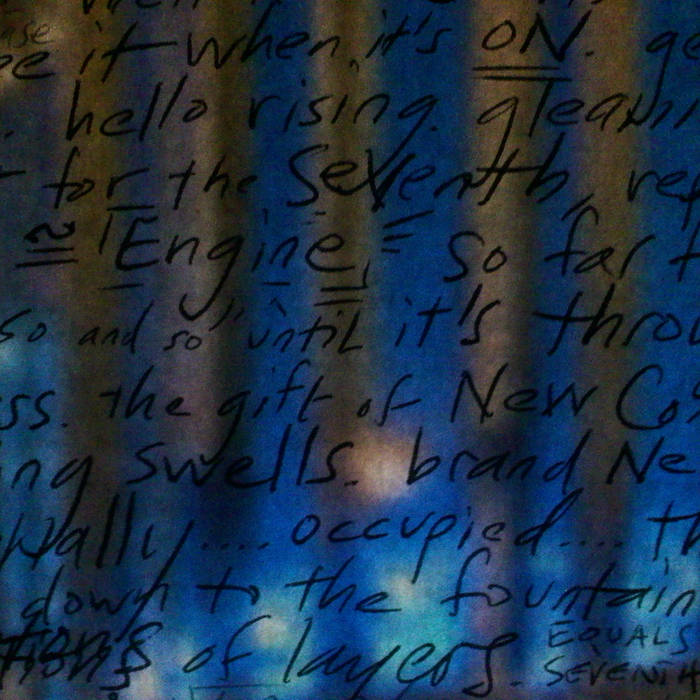 ee it when it's ON. ge
. hello rising. gleami
for the Seventh, rep
"Engine," so far t
so and so until it's throu
ss. the gift of New Co
ing swells. brand Ne
ually .... occupied .... th
down to the fountain
tions of layers. EQUALS
SEVENTH